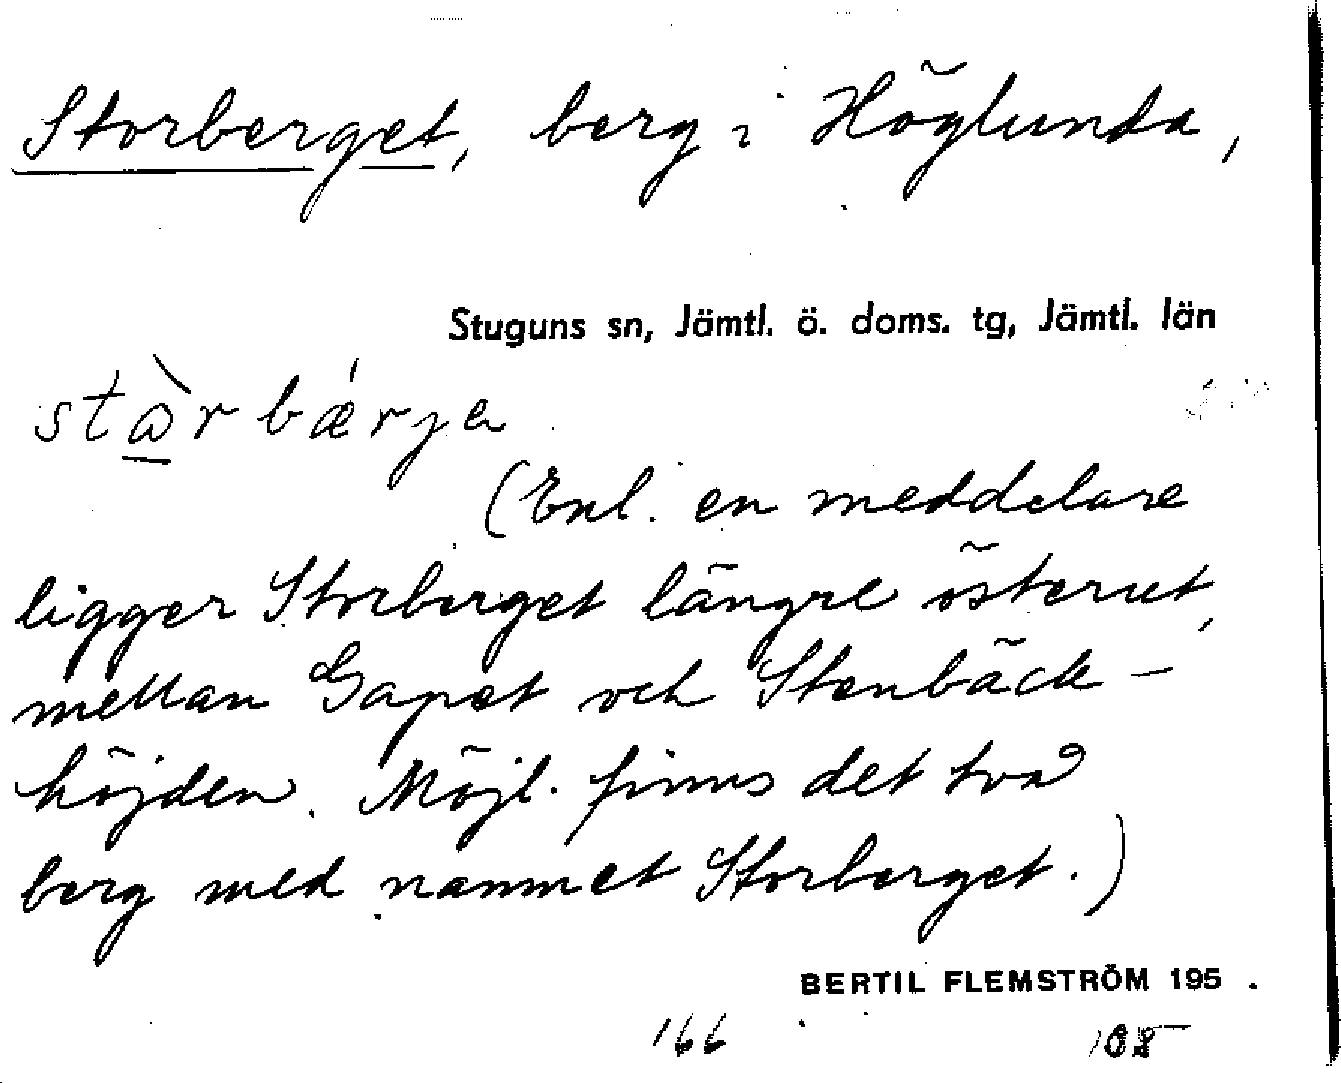 Storberget, berg i Höglunda,
Stuguns sn, Jämtl. ö. doms. tg, Jämtl. län
stὼ̲rbǽrjα
(Enl. en meddelare
ligger Storberget längre österut,
mellan Gapet och Stenbäck-
höjden. Möjl. finns det två
berg med namnet Storberget.)
BERTIL FLEMSTRÖM 195 .
166